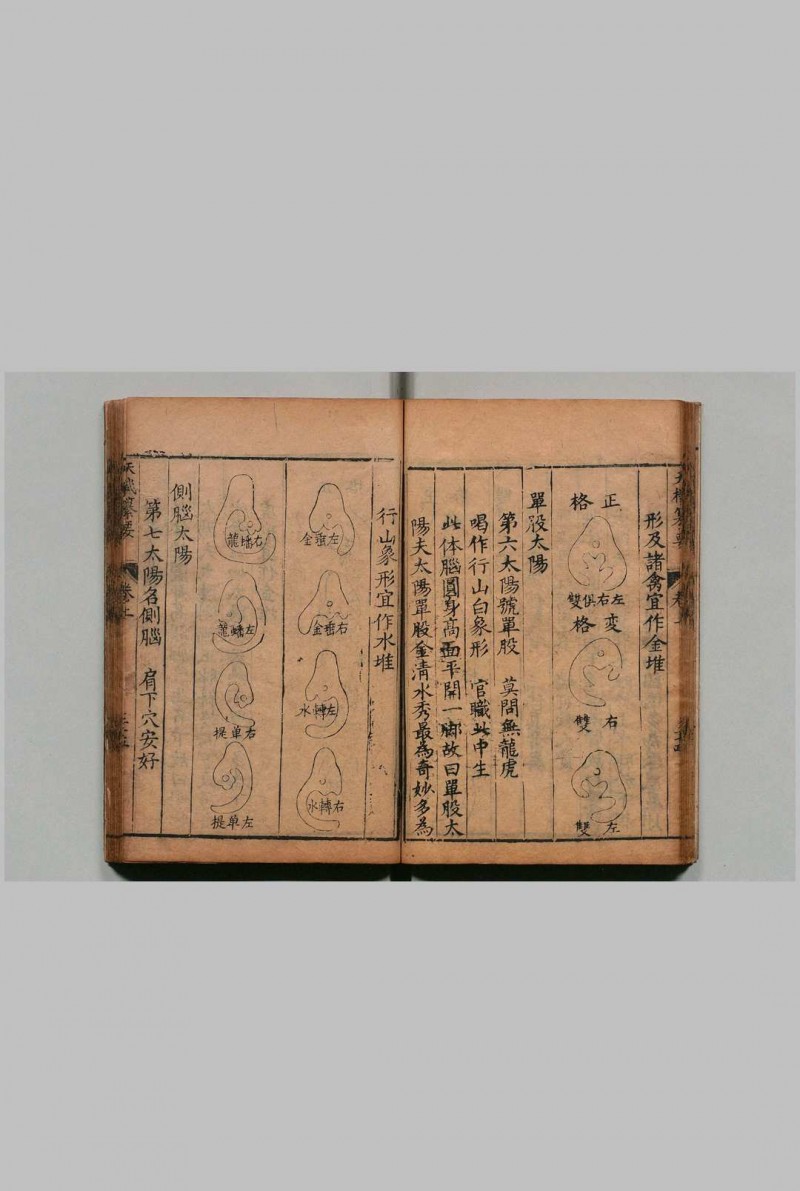 形及諸禽宜作金堆
正格
左右俱雙
變格
右雙
左雙
單股太陽
第六太陽號單股 莫問無龍虎
喝作行山白象形 官職此中生
此体腦圓身高面平開一脚故曰單股太
陽夫太陽單股金清水秀最為奇妙多為
行山象形宜作水堆
左垂金
右垂金
左轉水
右轉水
右蟠龍
左蟠龍
右单提
左单提
側腦太陽
第七太陽名側腦 肩下穴安好
天機纂要 卷上